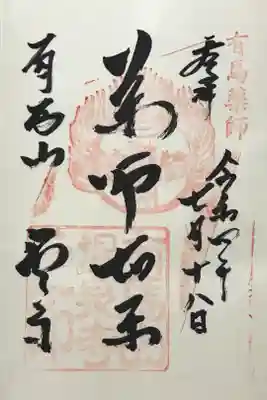 有馬薬師
奉拝
令和四年
七月十八日
薬師如来
有馬山